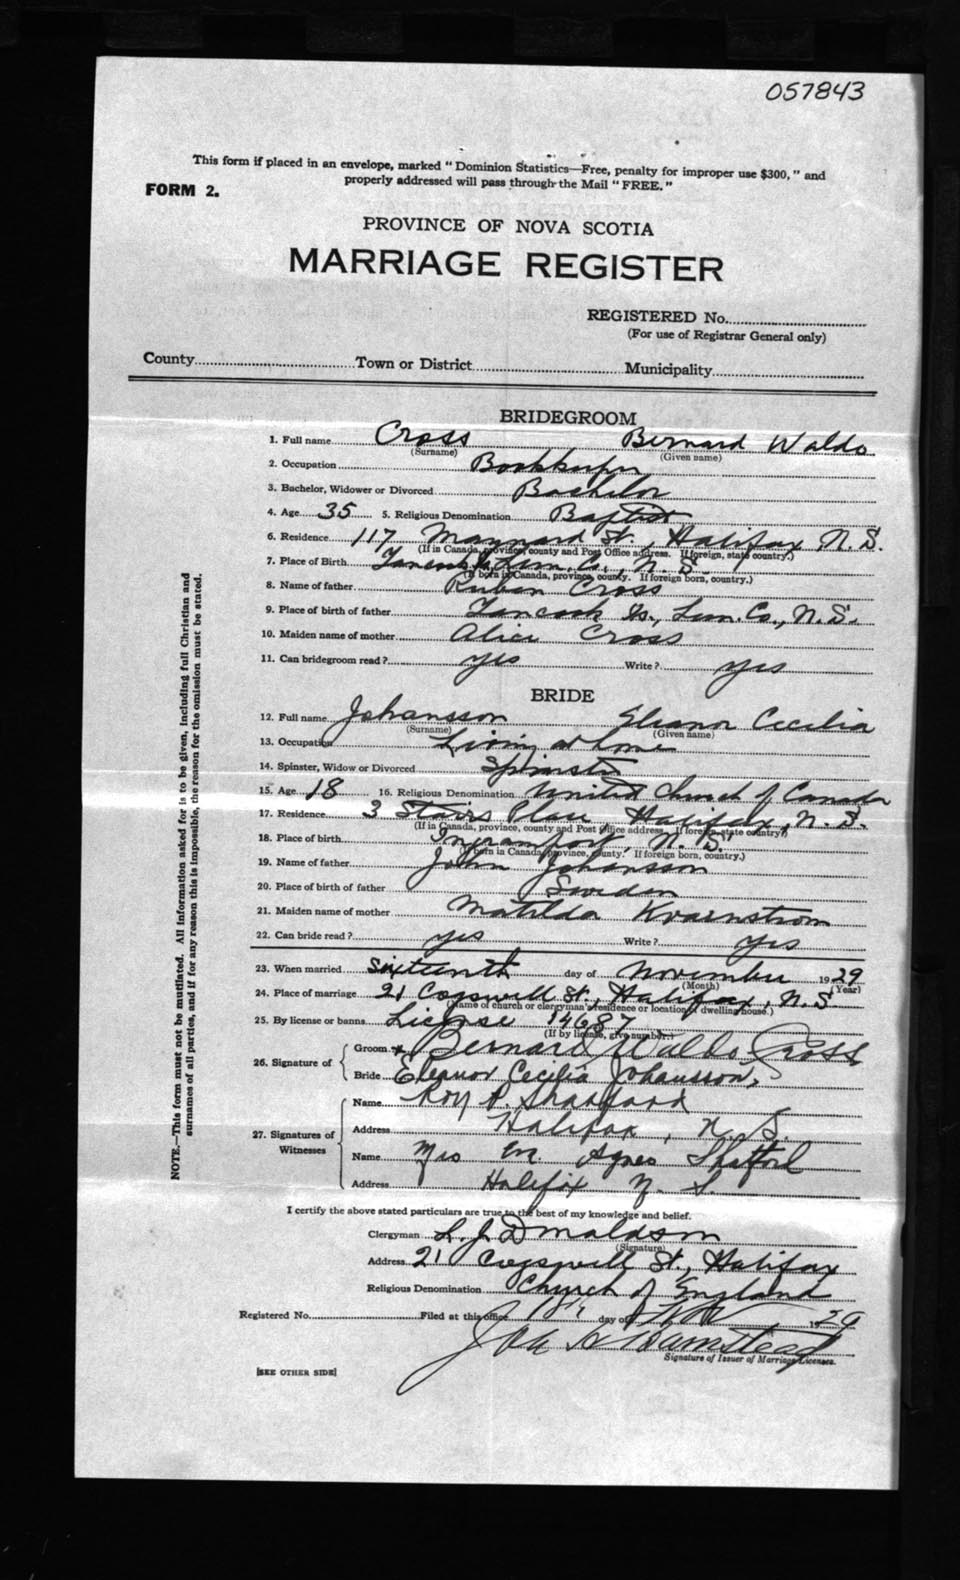 057843
This form if placed in an envelope, marked "Dominion Statistics—Free, penalty for improper use $300," and
FORM 2. properly addressed will pass through the Mail "FREE."
PROVINCE OF NOVA SCOTIA
MARRIAGE REGISTER
REGISTERED No.
(For use of Registrar General only)
County Town or District Municipality
BRIDEGROOM
1. Full name Cross Bernard Waldo
(Surname) (Given name)
2. Occupation Bookkeeper
3. Bachelor, Widower or Divorced Bachelor
4. Age 35 5. Religious Denomination Baptist
6. Residence 117 Maynard St., Halifax N.S.
(If in Canada, province, county and Post Office address. If foreign, state country.)
7. Place of Birth Tancook Lun. Co., N.S.
(If born in Canada, province, county. If foreign born, country.)
8. Name of father Ruben Cross
9. Place of birth of father Tancook Is., Lun. Co., N.S.
10. Maiden name of mother Alice Cross
11. Can bridegroom read? yes Write? yes
BRIDE
12. Full name Johansson Eleanor Cecilia
(Surname) (Given name)
13. Occupation Living at home
14. Spinster, Widow or Divorced Spinster
15. Age 18 16. Religious Denomination United Church of Canada
17. Residence 3 Stairs Place, Halifax, N.S.
(If in Canada, province, county and Post Office address. If foreign, state country)
18. Place of birth Ingramport, N.S.
(If born in Canada, province, county. If foreign born, country.)
19. Name of father John Johansson
20. Place of birth of father Sweden
21. Maiden name of mother Matilda Kvarnstrom
22. Can bride read? yes Write? yes
23. When married sixteenth day of November 1929
(Month) (Year)
24. Place of marriage 21 Cogswell St., Halifax, N.S.
(Name of church or clergyman's residence or location of dwelling house.)
25. By license or banns License 14687
(If by license, give number.)
26. Signature of Groom x Bernard Waldo Cross
Bride Eleanor Cecilia Johansson,
27. Signatures of Witnesses
Name Roy
Address Halifax, N.S.
Name Mrs Agnes Shatford
Address Halifax N.S.
I certify the above stated particulars are true to the best of my knowledge and belief.
Clergyman L. J. Donaldson
(Signature)
Address 21 Cogswell St., Halifax
Religious Denomination Church of England
Registered No. Filed at this office 18 day of Nov 1929
Signature of Issuer of Marriage Licenses.
[SEE OTHER SIDE]
NOTE.—This form must not be mutilated. All information asked for is to be given, including full Christian and
surnames of all parties, and if for any reason this is impossible, the reason for the omission must be stated.